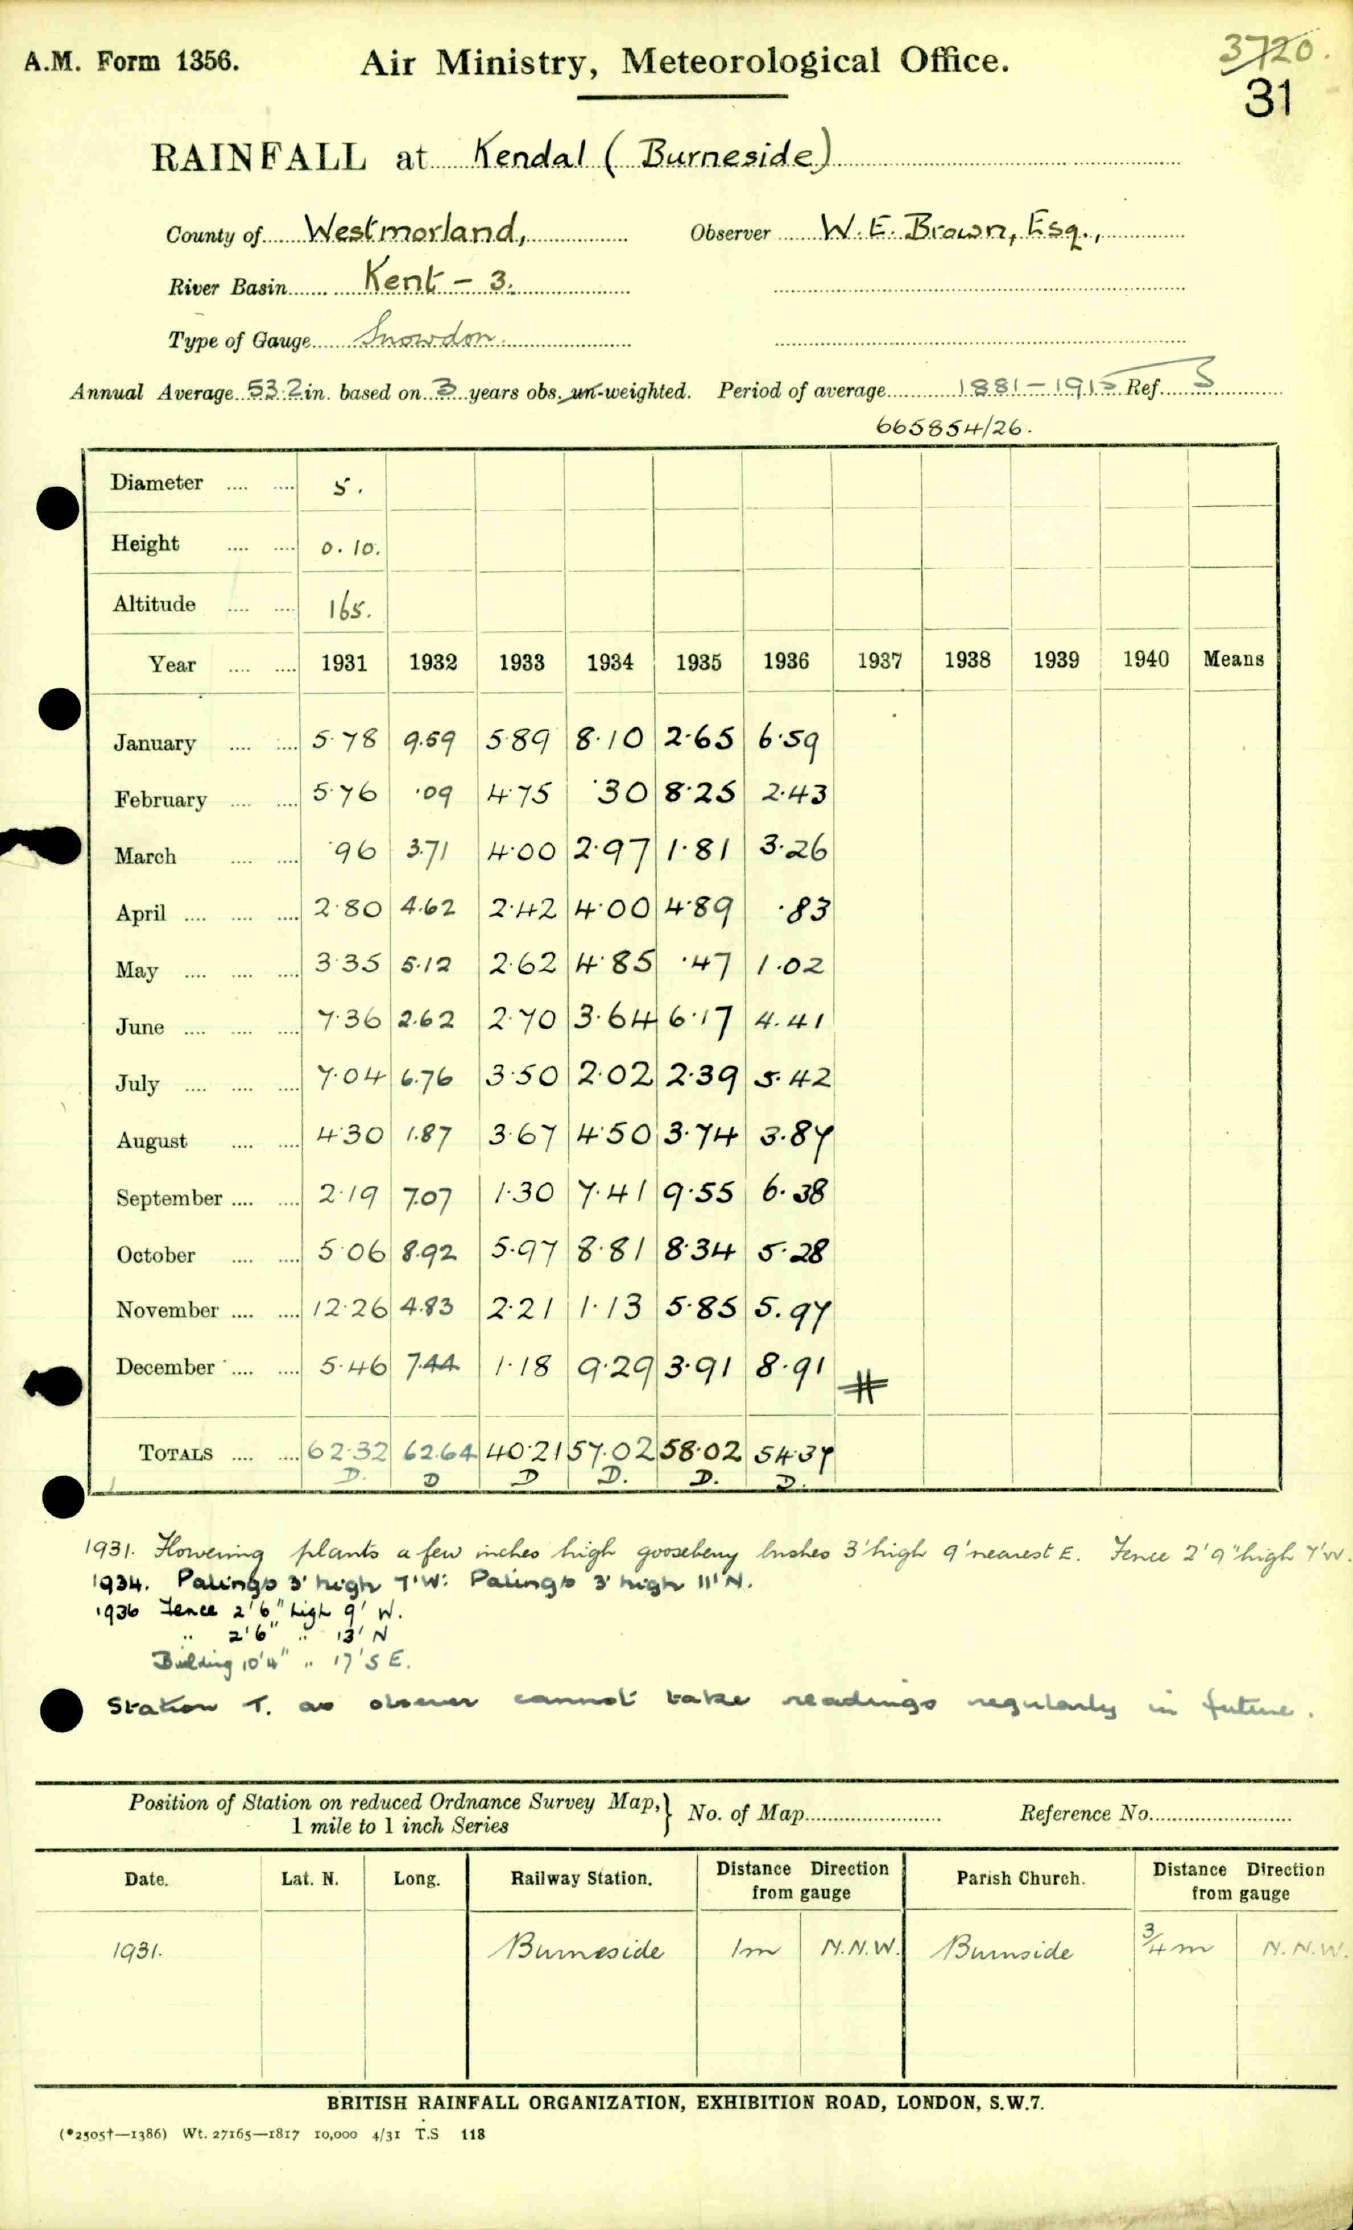 A.M. Form 1356. Air Ministry, Meteorological Office. 3720.
31
RAINFALL at Kendal (Burneside)
County of Westmorland, Observer W. E. Brown, Esq.,
River Basin Kent - 3.
Type of Gauge Snowdon
Annual Average 53.2 in. based on 3 years obs. un-weighted. Period of average 1881-1915 Ref. S
665854/26.
Diameter 5.
Height 0.10.
Altitude 165.
Year 1931 1932 1933 1934 1935 1936 1937 1938 1939 1940 Means
January 5.78 9.59 5.89 8.10 2.65 6.59
February 5.76 .09 4.75 .30 8.25 2.43
March .96 3.71 4.00 2.97 1.81 3.26
April 2.80 4.62 2.42 4.00 4.89 .83
May 3.35 5.12 2.62 4.85 .47 1.02
June 7.36 2.62 2.70 3.64 6.17 4.41
July 7.04 6.76 3.50 2.02 2.39 5.42
August 4.30 1.87 3.67 4.50 3.74 3.87
September 2.19 7.07 1.30 7.41 9.55 6.38
October 5.06 8.92 5.97 8.81 8.34 5.28
November 12.26 4.83 2.21 1.13 5.85 5.97
December 5.46 7.44 1.18 9.29 3.91 8.91
TOTALS 62.32 62.64 40.21 57.02 58.02 54.37
D. D D D. D. D.
1931. Flowering plants a few inches high gooseberry bushes 3' high 9' nearest E. Fence 2'9" high 7'W.
1934. Palings 3' high 7'W: Palings 3' high 11'N.
1936 Fence 2'6" high 9' W.
" 2'6" " 13' N
Building 10'4" " 17'S E.
Station T. as observer cannot take readings regularly in future.
Position of Station on reduced Ordnance Survey Map, } No. of Map Reference No.
1 mile to 1 inch Series
Date. Lat. N. Long. Railway Station. Distance Direction from gauge Parish Church. Distance Direction from gauge
1931. Burneside 1m N.N.W. Burnside 3/4 m N.N.W.
BRITISH RAINFALL ORGANIZATION, EXHIBITION ROAD, LONDON, S.W.7.
(*2505†—1386) Wt. 27165—1817 10,000 4/31 T.S 118